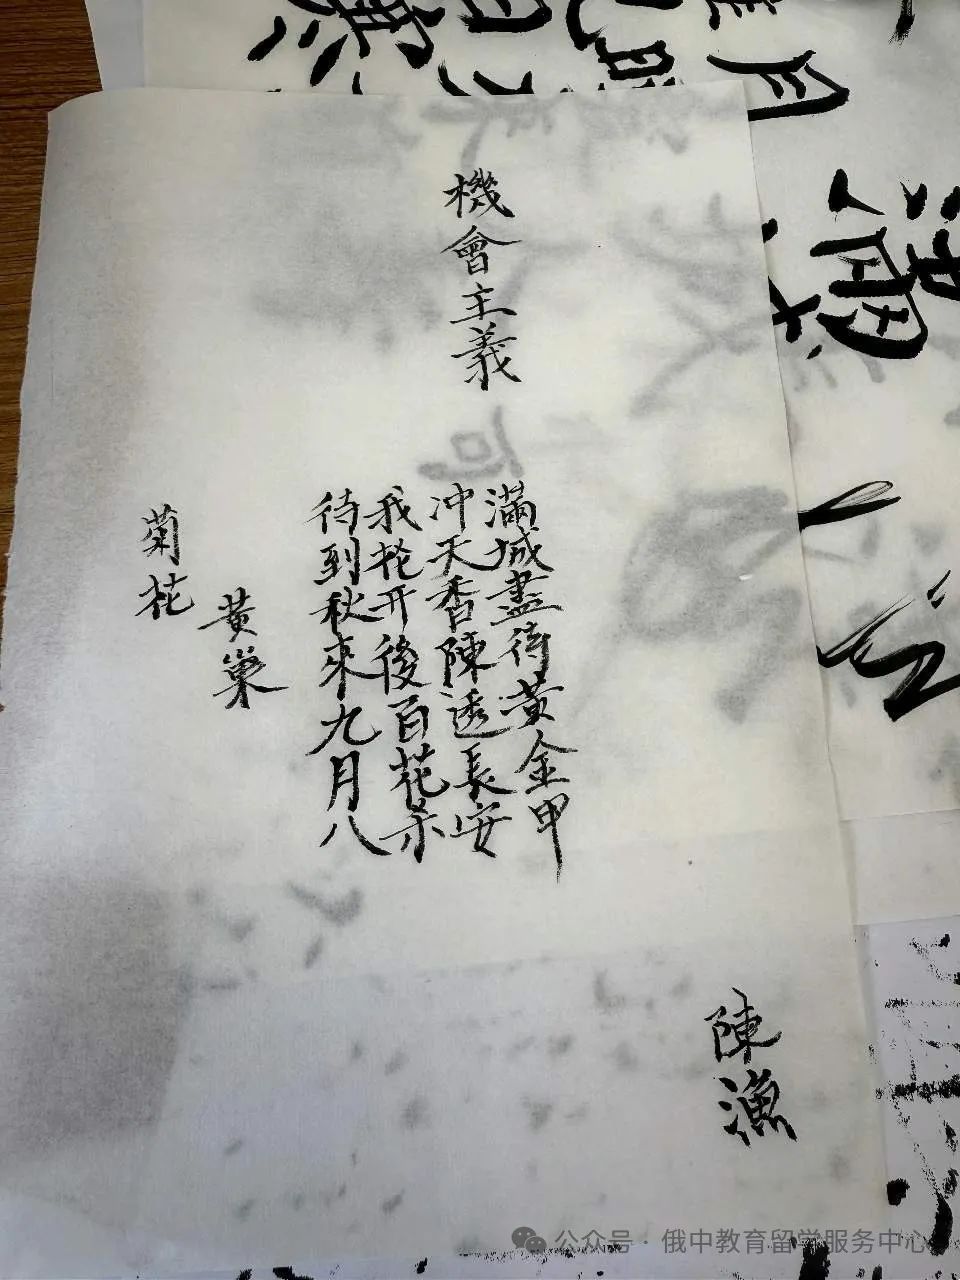 機會主義
菊花
黄巢
待到秋來九月八
我开後百花杀
冲天香陳透長安
滿城盡待黄金甲
陳漁
公众号·俄中教育留学服务中心